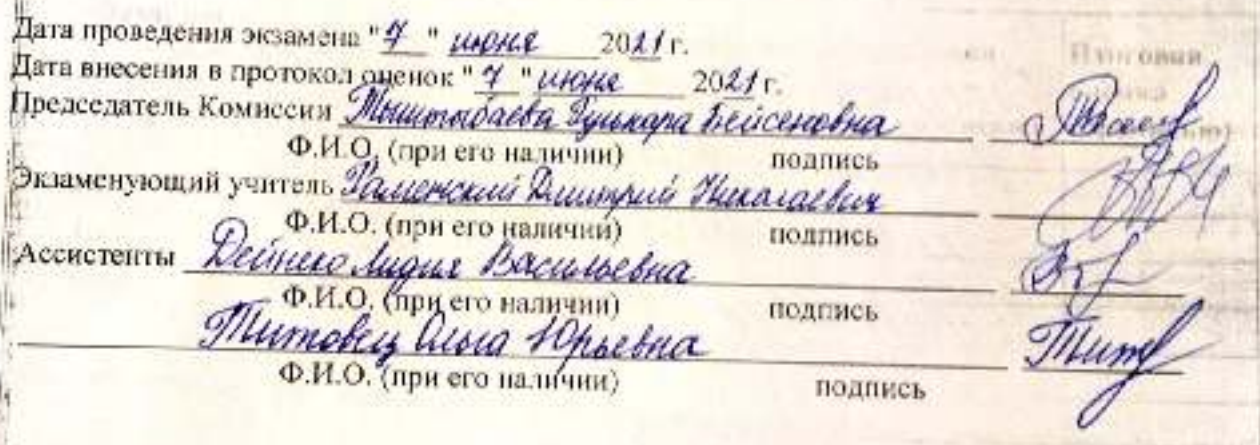 Дата проведения экзамена "7" июня 2021 г.
Дата внесения в протокол оценок "7" июня 2021 г.
Председатель Комиссии Гулькара Бейсеновна
Ф.И.О. (при его наличии) подпись
Экзаменующий учитель Раменский Дмитрий Николаевич
Ф.И.О. (при его наличии) подпись
Ассистенты Дейнеко Лидия Васильевна
Ф.И.О. (при его наличии) подпись
Титовец Ольга Юрьевна
Ф.И.О. (при его наличии) подпись